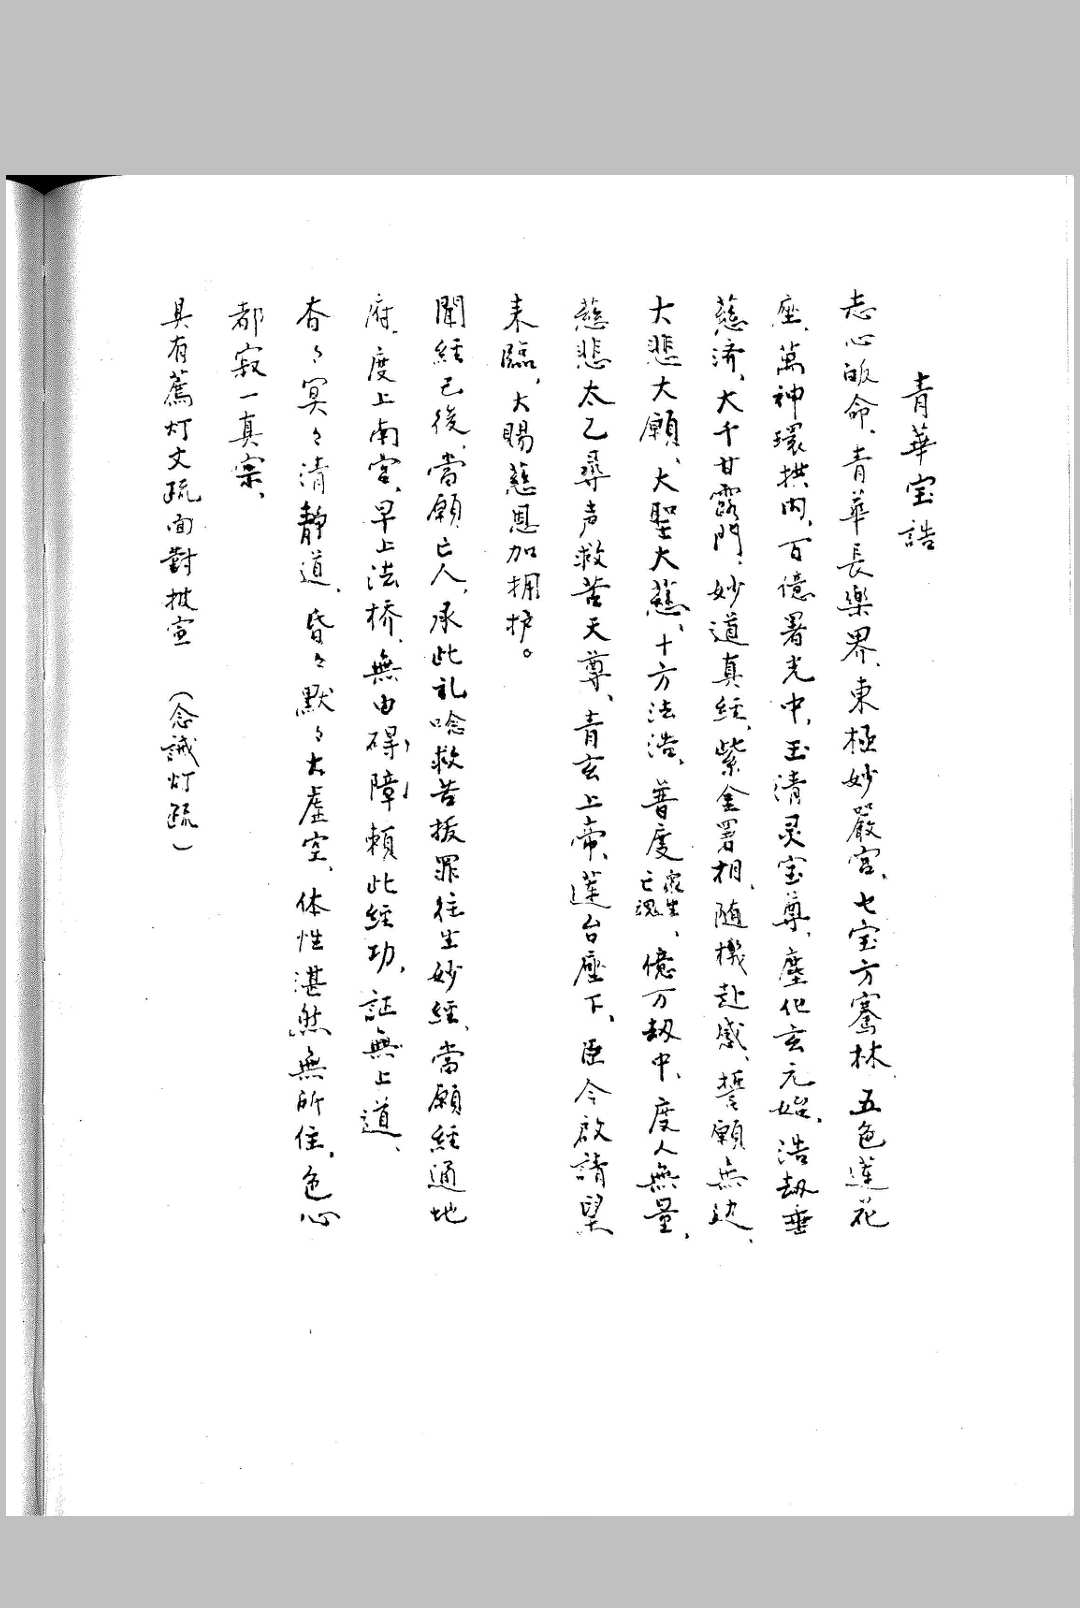 青華宝誥
志心皈命、青華長樂界、東極妙嚴宮、七宝方騫林、五色蓮花
座、萬神環拱內、百億署光中、玉清灵宝尊、塵化玄元始、浩劫垂
慈济、大千甘露門、妙道真経、紫金署相、随機赴感、誓願無边、
大悲大願、大聖大慈、十方法浩、普度衆生亡魂、億万劫中、度人無量、
慈悲太乙尋声救苦天尊、青玄上帝、蓮台座下、臣今啟請望
来臨、大賜慈恩加拥护。
聞経已後、當願亡人、承此礼唸救苦拔罪往生妙経、當願経通地
府、度上南宮、早上法桥、無由碍障、頼此経功、証無上道、
杳々冥々清靜道、昏々默々太虛空、体性湛然無所住、色心
都寂一真宗、
具有薦灯文疏面對披宣 （念誡灯疏）